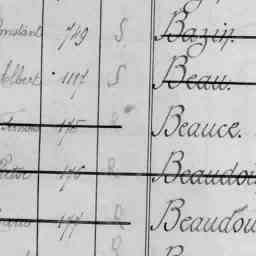 Constant 749 S Bazin.
Albert 1117 S Beau.
175 R Beauce.
176 R Beaudou
177 R Beaudou
R